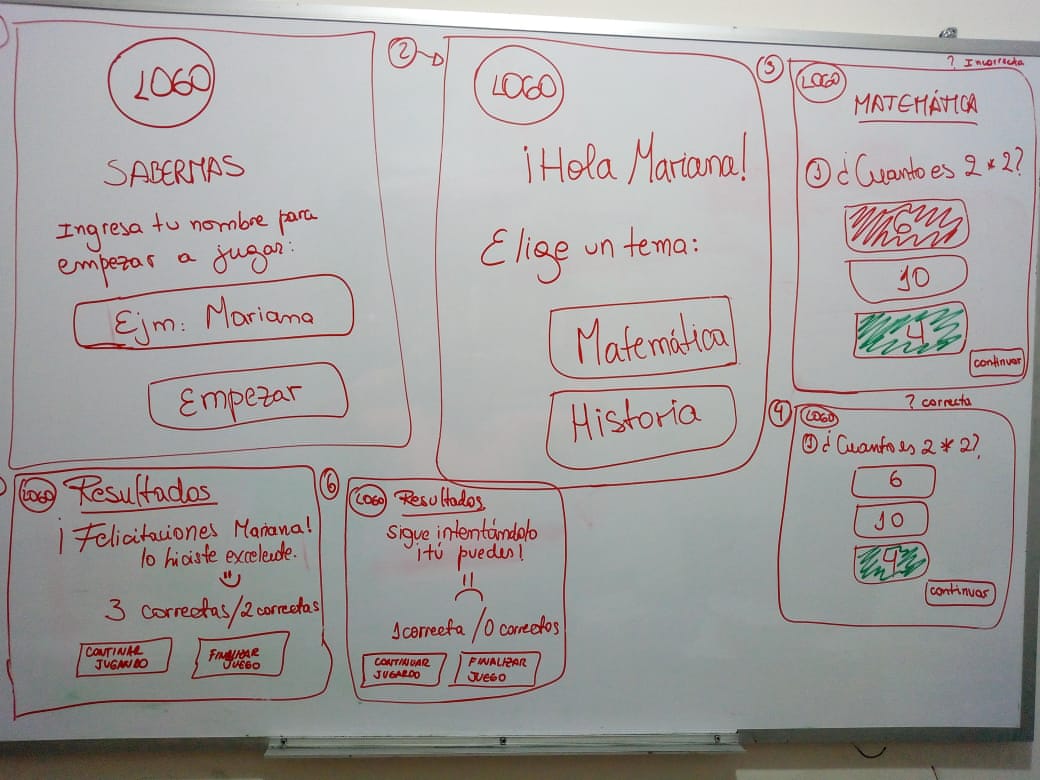 LOGO
SABERMAS
Ingresa tu nombre para
empezar a jugar:
Ejm: Mariana
Empezar
2
LOGO
¡Hola Mariana!
Elige un tema:
Matemática
Historia
3
? Incorrecta
LOGO
MATEMÁTICA
1 ¿Cuanto es 2 * 2?
6
10
4
continuar
4
? correcta
LOGO
1 ¿Cuanto es 2 * 2?
6
10
4
continuar
LOGO Resultados
¡Felicitaciones Mariana!
lo hiciste excelente.
3 correctas/2 correctas
CONTINAR
JUGANDO
FINALIZAR
JUEGO
6
LOGO Resultados
Sigue intentándolo
¡tú puedes!
1 correcta / 0 correctas
CONTINUAR
JUGARDO
FINALIZAR
JUEGO